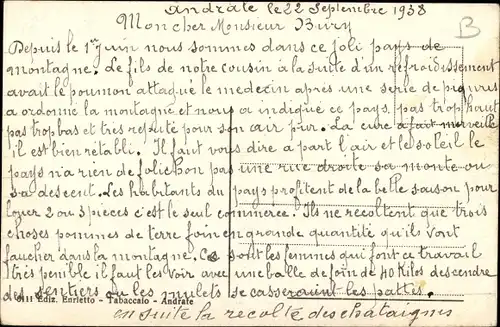 Andrate le 22 Septembre 1938
Mon cher Monsieur Bury
B
Depuis le 1er juin nous sommes dans ce joli pays de
montagne. Le fils de notre cousin à la suite d'un refroidissement
avait le poumon attaqué le medecin après une serie de piqures
a ordonné la montagne et nous a indiqué ce pays, pas trop haut
pas trop bas et très reputé pour son air pur. La cure a fait merveille
il est bien rétabli. Il faut vous dire à part l'air et le soleil le
pays n'a rien de jolie bon pas une rue droite sa monte ou
sa descent. Les habitants du pays profitent de la belle saison pour
louer 2 ou 3 pièces c'est le seul commerce. Ils ne recoltent que trois
choses pommes de terre foin en grande quantité qu'ils vont
faucher dans la montagne. Ce sont les femmes qui font ce travail
très penible il faut les voir avec une balle de foin de 40 Kilos descendre
des sentiers ou les mulets se casseraient les pattes.
Ediz. Enrietto - Tabaccaio - Andrate
ensuite la recolte des chataignes